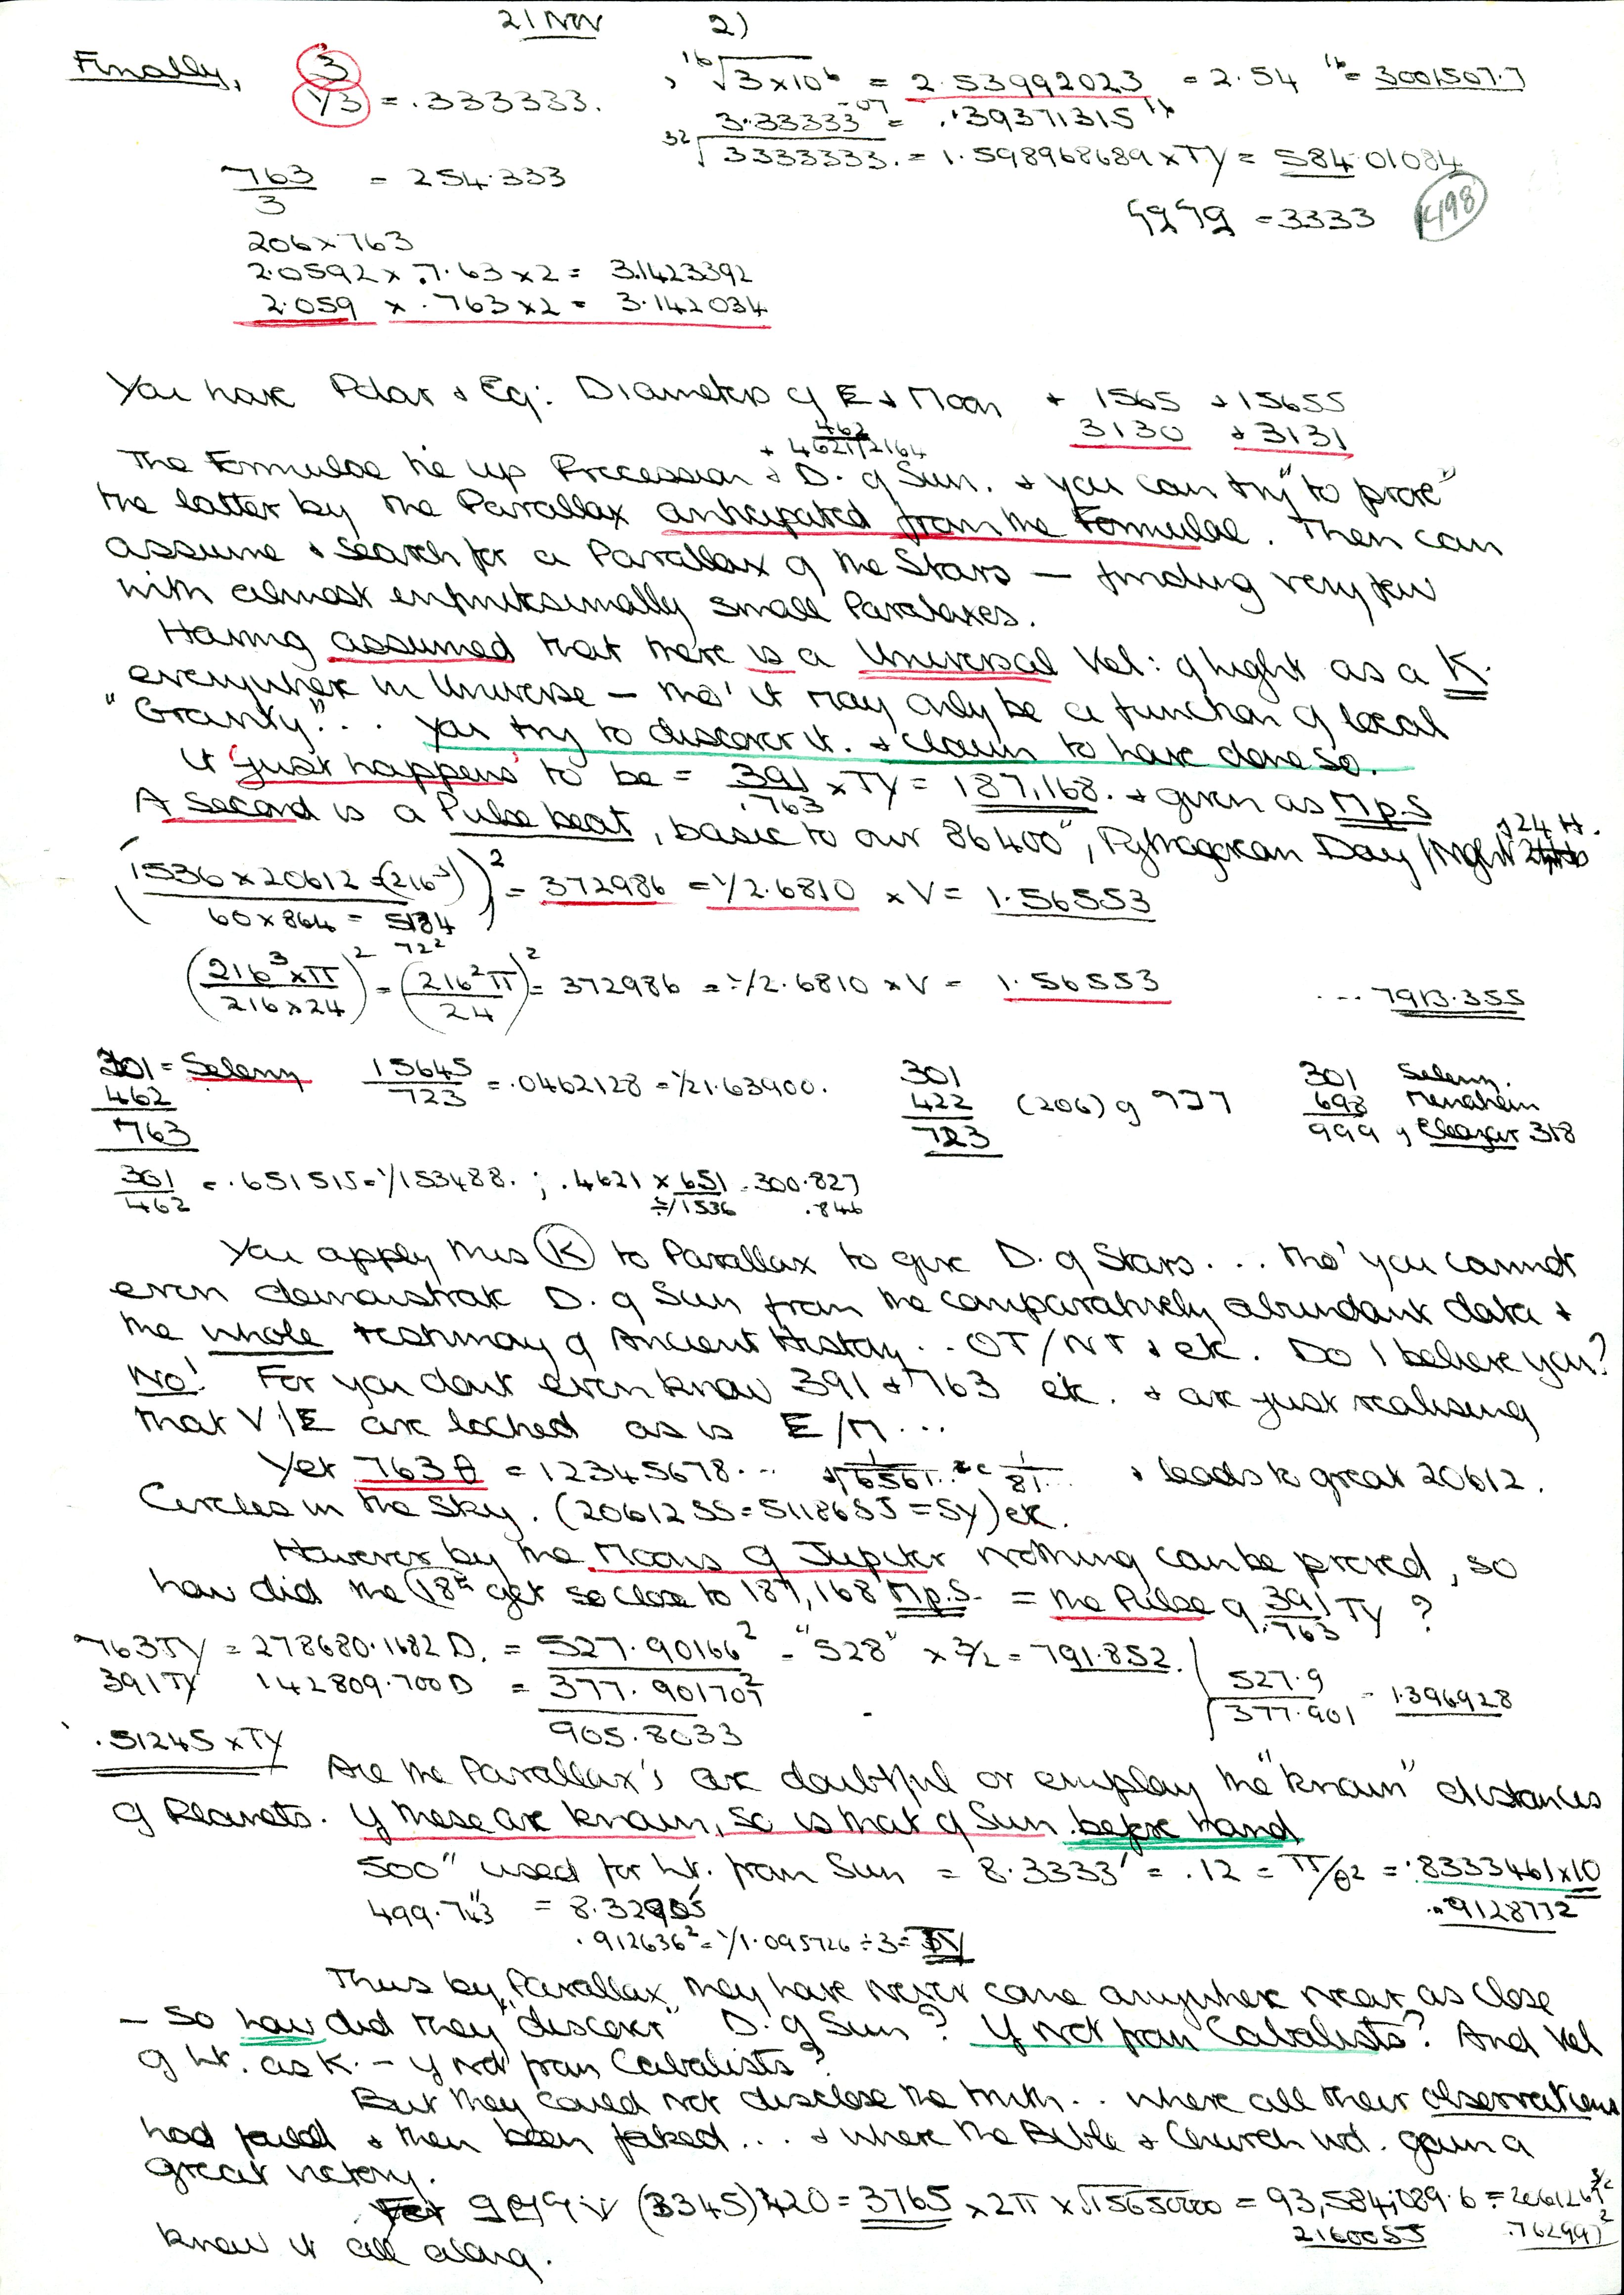 21 NOV 2)
Finally, 3
1/3 = .333333.
, 16√3×10⁶ = 2.53992023 = 2.54 ¹⁶= 3001507.7
3.33333⁻⁰⁷ = .39371315 ¹⁶
32√3333333. = 1.598968689 × TY = 584.01084
763/3 = 254.333
= 3333 K198
206×763
2.0592 × .7.63 × 2 = 3.1423392
2.059 × .763 × 2 = 3.142034
You have Polar + Eq: Diameters of E + Moon + 1565 + 15655
3130 + 3131
462
+ 4621/2164
The Formulae tie up Precession + D. of Sun. + you can try "to prove"
the latter by the Parallax anticipated from the Formulae. Then can
assume + Search for a Parallax of the Stars — finding very few
with almost enfinitesimally small Paralaxes.
Having assumed that there is a Universal Vel: of light as a K.
everywhere in Universe — tho' it may only be a function of local
"Gravity"... You try to discover it. + claim to have done so.
It 'just happens' to be = 391/.763 × TY = 187,168. + given as Mp.S
A Second is a Pulse beat, basic to our 86400", Pythagorean Day/Night 24 H.
(1536 × 20612 = (216³) / 60×864 = 5184)² = 372986 = 1/2.6810 × V = 1.56553
72²
(216³×π / 216×24)² = (216²π / 24)² = 372986 = 1/2.6810 × V = 1.56553 ... 7913.355
301 = Seleny 15645/723 = .0462128 = 1/21.63900. 301 301 Seleny.
462 422 (206) of 698 Menahem
763 723 999 of Eleazar 318
301/462 = .651515 = 1/153488. ; .4621 × 651 = 300.827
÷/1536 .846
You apply this K to Parallax to give D. of Stars... tho' you cannot
even demonstrate D. of Sun from the comparatively abundant data +
the whole testimony of Ancient History.. OT/NT + etc. Do I believe you?
No! For you dont even know 391 + 763 etc. + are just realising
that V/E are locked as is E/M...
Yet 763θ = 12345678... 1/81... + leads to great 20612.
Circles in the Sky. (20612 SS = 5118655 = SY) etc.
However by the Moons of Jupiter nothing can be proved, so
how did the 18th get so close to 187,168 Mp.S. = the Pulse of 391/.763 TY ?
763TY = 278680.1682 D. = 527.90166² = "528" × 3/2 = 791.852.
391TY 142809.700D = 377.901707² √527.9/377.901 = 1.396928
.51245 × TY 905.8033
All the Parallax's are doubtful or employ the "known" distances
of Planets. If these are known, so is that of Sun before hand
500" used for Lt. from Sun = 8.3333' = .12 = π/θ2 = .8333461×10
499.743" = .9128772
.912636² = 1/1.095726 ÷ 3 =
Thus by Parallax they have never come anywhere near as close
— So how did they "discover" D. of Sun? If not from Cabalists? And Vel
of Lt. as K. — if not from Cabalists?
But they could not disclose the truth.. where all their observations
had failed + then been faked... + where the Bible + Church wd. gain a
great victory.
(3345) 420 = 3765 × 2π × √15650000 = 93,584,089.6 =
2160055 .762997²
knew it all along.